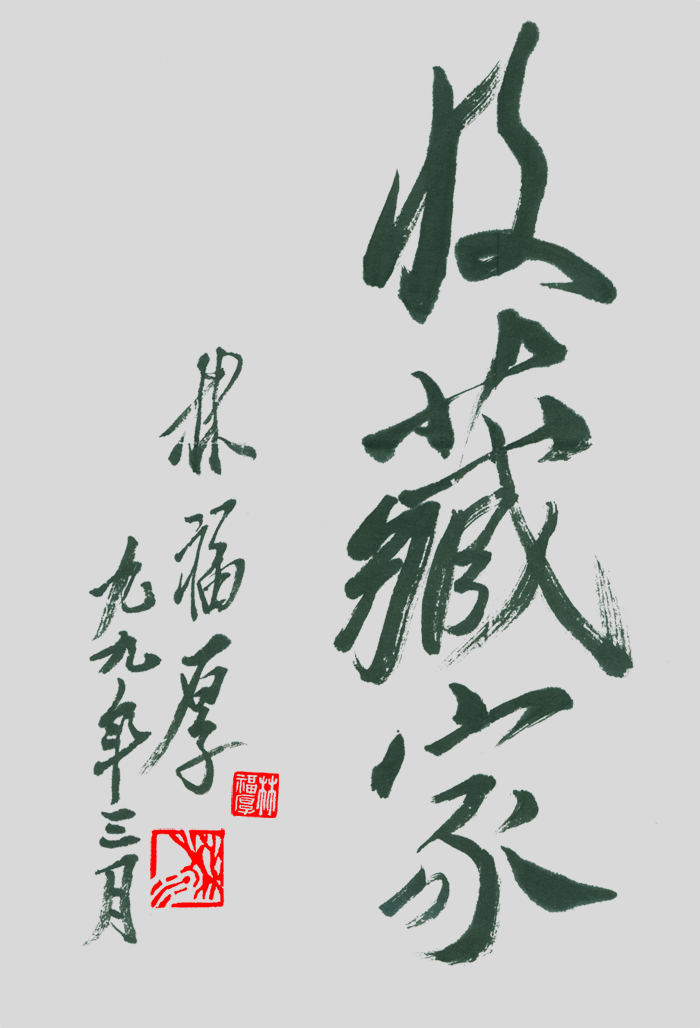 收藏家
林福厚
九九年三月
林福厚